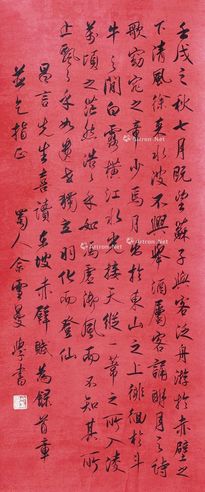 壬戌之秋七月既望蘇子與客泛舟游於赤壁之
下清風徐來水波不興舉酒屬客誦明月之詩
歌窈窕之章少焉月出於東山之上徘徊於斗
牛之間白露橫江水光接天縱一葦之所如凌
萬頃之茫然浩乎如馮虛御風而不知其所
止飄飄乎如遺世獨立羽化而登仙
昌言先生喜讀東坡赤壁賦為錄首章
並乞指正 蜀人余雪曼學書
Artron.Net